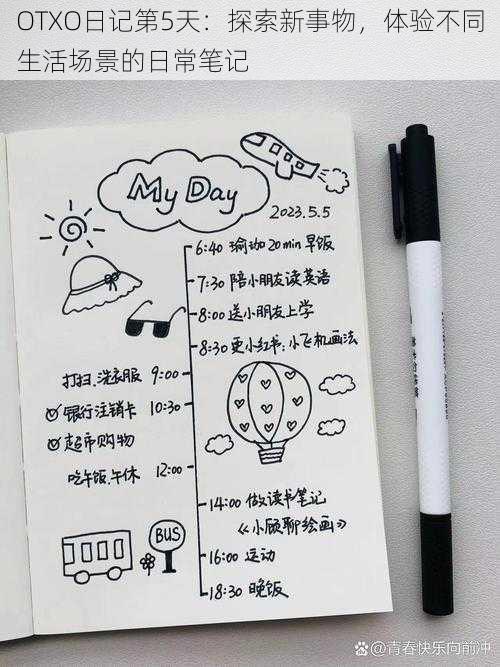 OTXO日记第5天：探索新事物，体验不同
生活场景的日常笔记
My Day
2023.5.5
6:40 瑜珈20min 早饭
7:30 陪小朋友读英语
8:00 送小朋友上学
8:30 更小红书:小飞机画法
打扫.洗衣服 9:00
银行注销卡 10:30
超市购物
吃午饭.午休 12:00
14:00 做读书笔记
《小顾聊绘画》
BUS
16:00 运动
18:30 晚饭
青春快乐向前冲